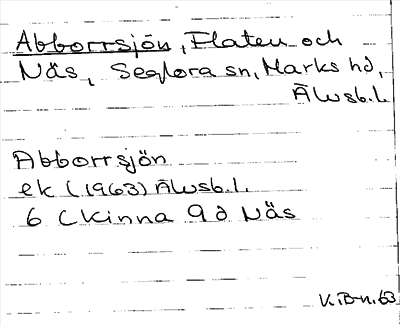 Abborrsjön, Flaten och
Näs, Seglora sn, Marks hd,
Älvsb.l.
Abborrsjön
ek (1963) Älvsb.l.
6 C Kinna 9d Näs
V.B-n.63